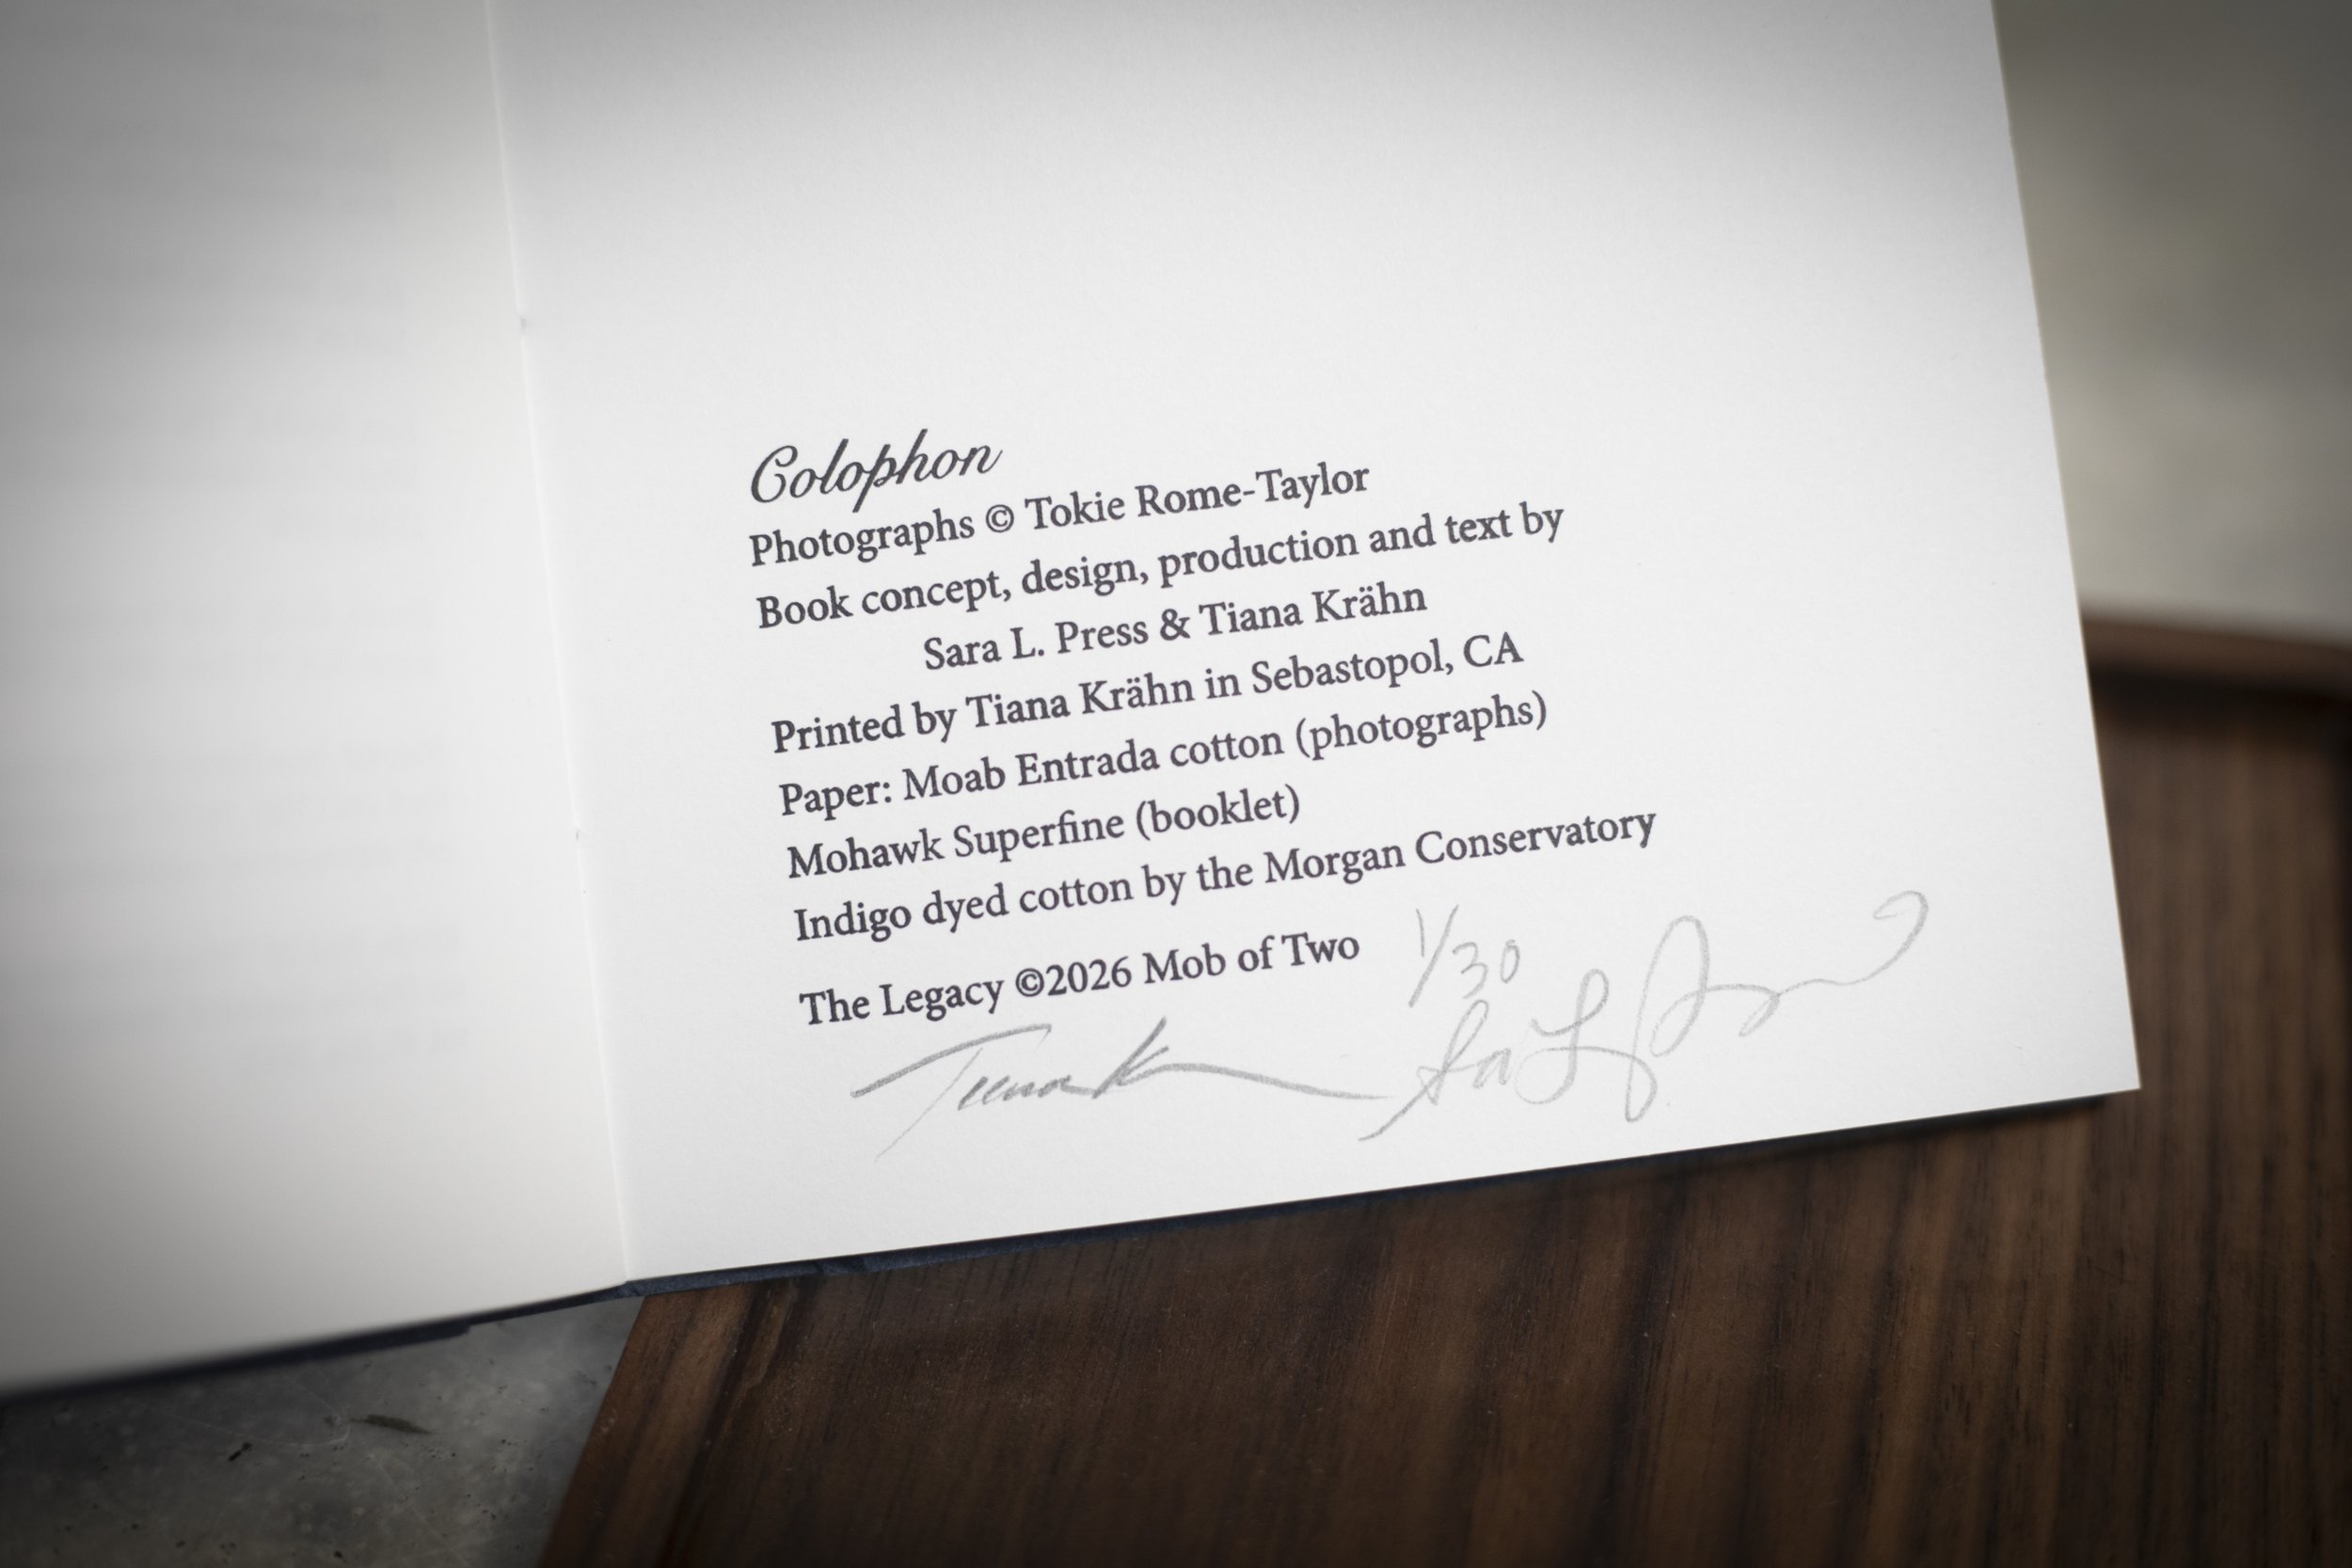 Colophon
Photographs © Tokie Rome-Taylor
Book concept, design, production and text by
Sara L. Press & Tiana Krähn
Printed by Tiana Krähn in Sebastopol, CA
Paper: Moab Entrada cotton (photographs)
Mohawk Superfine (booklet)
Indigo dyed cotton by the Morgan Conservatory
The Legacy ©2026 Mob of Two 1/30